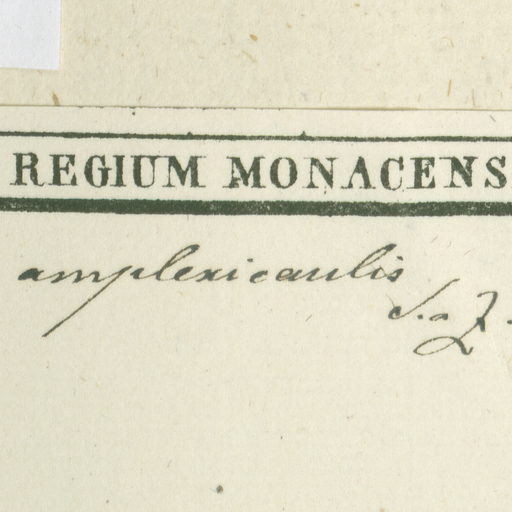 REGIUM MONACENS
amplexicaulis
S. a Z.